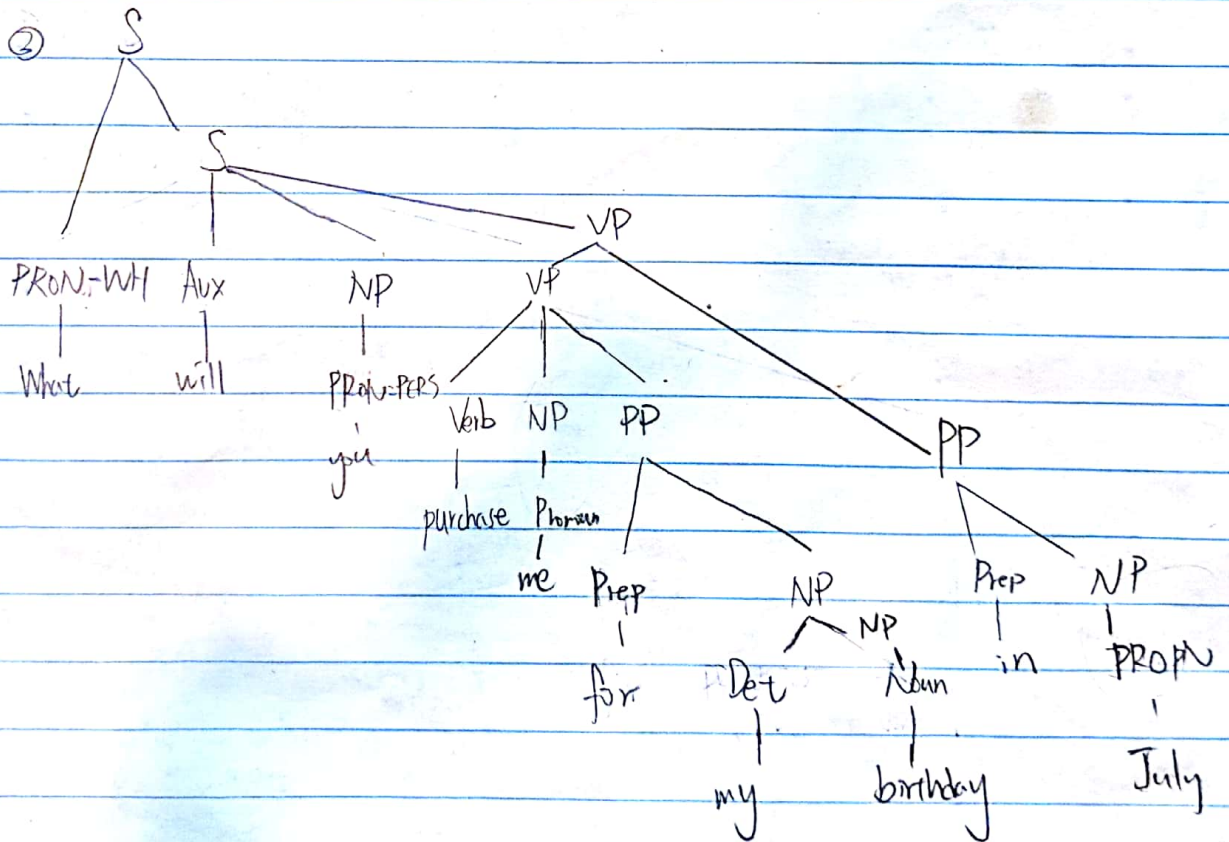 ② S
S
VP
PRON-WH Aux NP VP
What will PRON-PERS Verb NP PP PP
you purchase Pronoun
me Prep NP Prep NP
NP
for Det Noun in PROPN
my birthday July